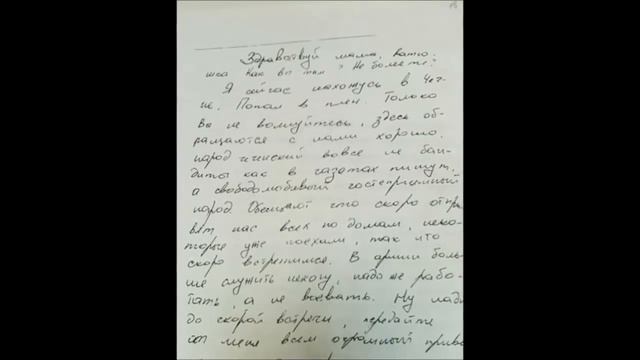 Здравствуй мама, Катю-
шка Как вы там? Не болеете?
Я сейчас нахожусь в Чеч-
не. Попал в плен. Только
Вы не волнуйтесь, здесь об-
ращаются с нами хорошо.
народ чеченский вовсе не бан-
диты как в газетах пишут,
а свободолюбивый гостеприимный
народ. Обещают что скоро отпра
вят нас всех по домам, неко-
торые уже поехали, так что
скоро встретимся. В армии боль-
ше служить некогу, надо же рабо-
тать, а не воевать. Ну ладно
до скорой встречи, передайте
от меня всем огромный привет